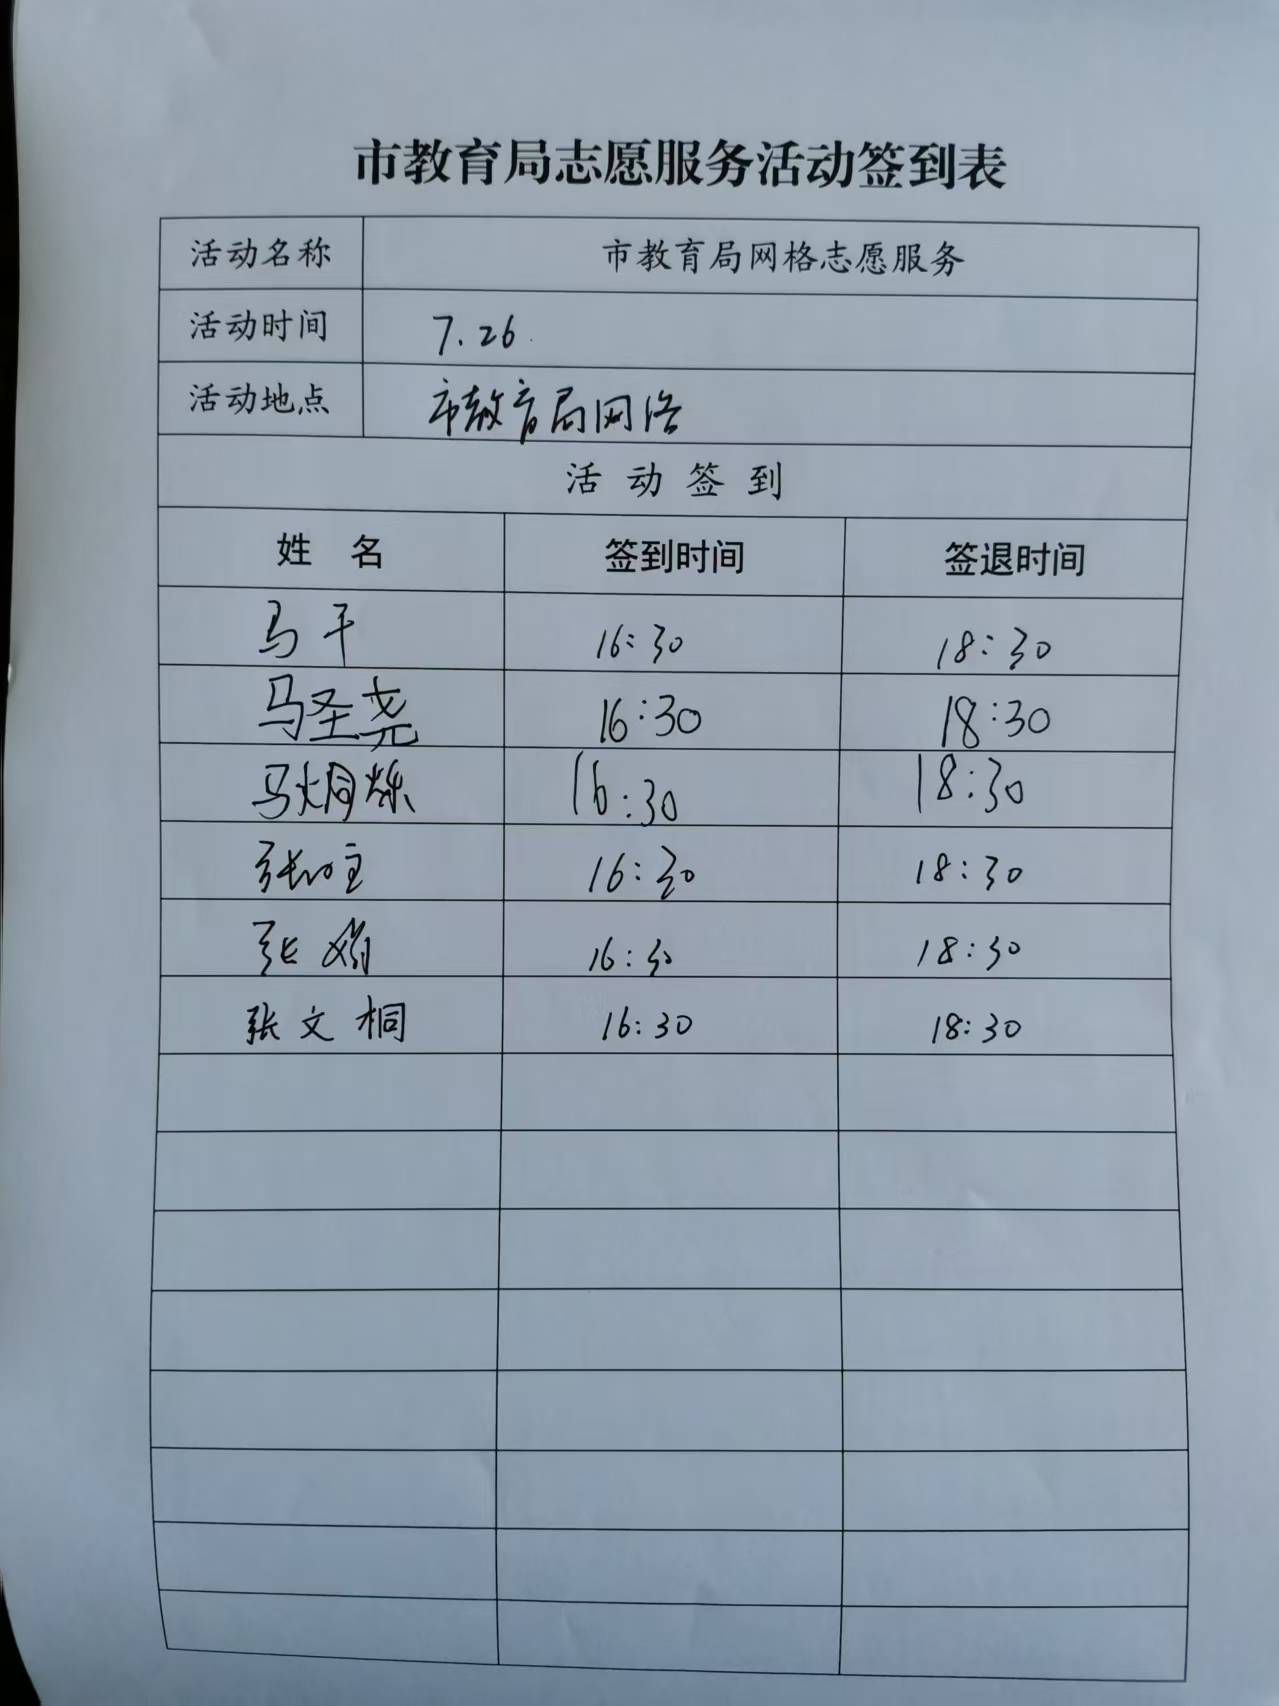 市教育局志愿服务活动签到表
活动名称 市教育局网格志愿服务
活动时间 7.26
活动地点 市教育局网络
活动签到
姓名 签到时间 签退时间
马干 16:30 18:30
马圣尧 16:30 18:30
马炯烁 16:30 18:30
张 16:30 18:30
张娟 16:30 18:30
张文桐 16:30 18:30